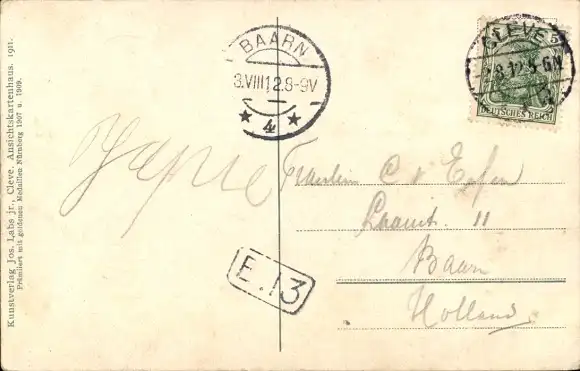 Kunstverlag Jos. Labs jr., Cleve, Ansichtskartenhaus. 1911.
Prämiiert mit goldenen Medaillen Nürnberg 1907 u. 1909.
BAARN
3.VIII12.8-9V
4
CLEVE
8.12.5-6N
5
DEUTSCHES REICH
Fräulein C v Essen
11
Baarn
Holland
E.13